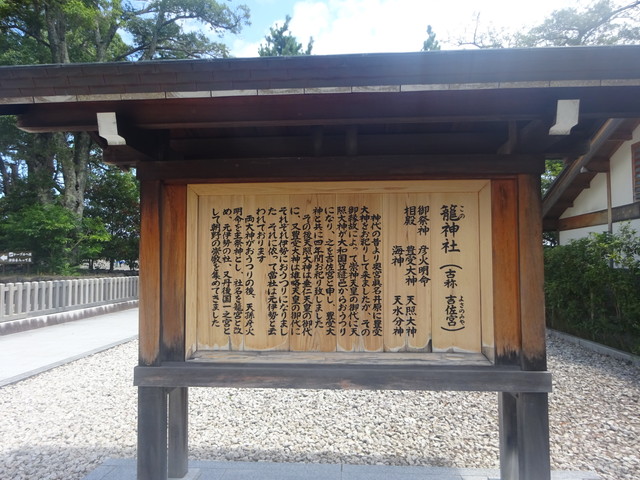 籠神社(吉称 吉佐宮)
この
よさのみや
御祭神 彦火明命
相殿 豊受大神 天照大神
海神 天水分神
神代の昔より奥宮真名井原に豊受
大神をお祀りして来ましたが、その
御縁故によって崇神天皇の御代に天
照大神が大和国笠縫邑からおうつり
になり、之を吉佐宮と申し、豊受大
神と共に四年間お祀り致しました
その後天照大神は垂仁天皇の御代
に、又豊受大神は雄略天皇の御代に
それぞれ伊勢におうつりになりまし
た。それに依って當社は元伊勢と云
われております
両大神がおうつりの後、天孫彦火
明命を主祭神とし、社名を籠宮と改
め、元伊勢の社、又丹後国一之宮と
して朝野の崇敬を集めてきました